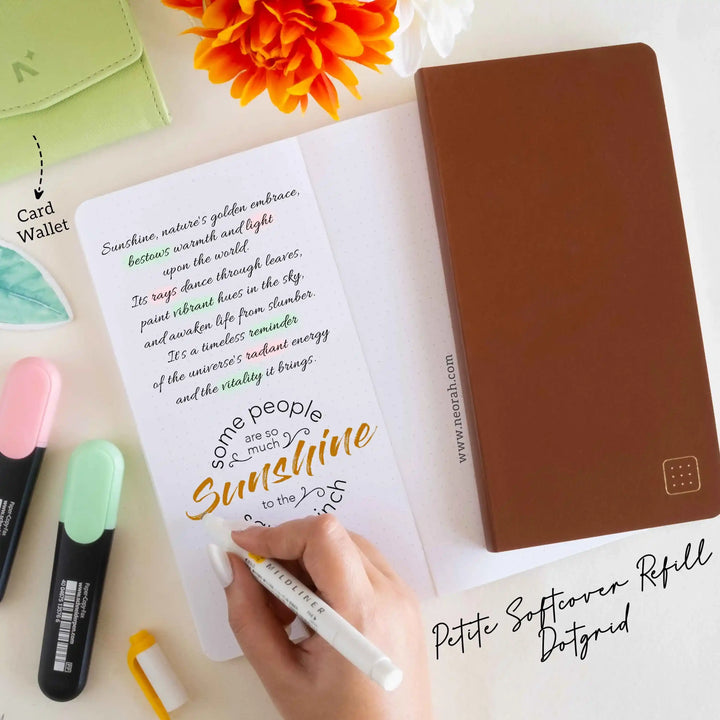 Card
Wallet
Sunshine, nature's golden embrace,
bestows warmth and light
upon the world.
Its rays dance through leaves,
paint vibrant hues in the sky,
and awaken life from slumber.
It's a timeless reminder
of the universe's radiant energy
and the vitality it brings.
some people
are so
much
Sunshine
to the
inch
MILDLINER
www.neorah.com
Petite Softcover Refill
Dotgrid